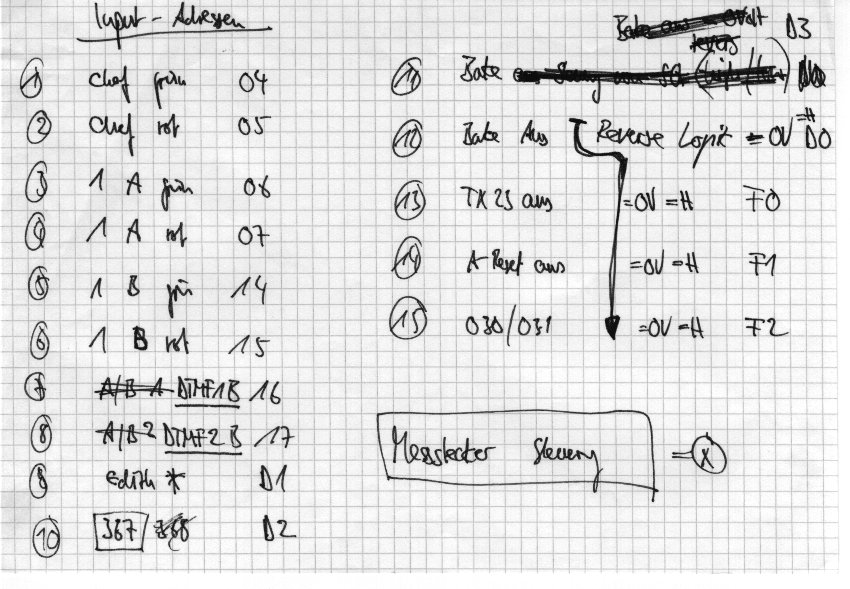 Input - Adressen
1 Chef grün 04
2 Chef rot 05
3 1 A grün 06
4 1 A rot 07
5 1 B grün 14
6 1 B rot 15
7 A/B 1 DTMF1B 16
8 A/B 2 DTMF2B 17
9 Edith * D1
10 367/368 D2
Bake aus = 0Volt D3
11 Bake
12 Bake Aus Reverse Logik = 0V =H D0
13 TK23 aus =0V =H F0
14 A-Reset aus =0V =H F1
15 030/031 =0V =H F2
Messstecker Steuerung = X